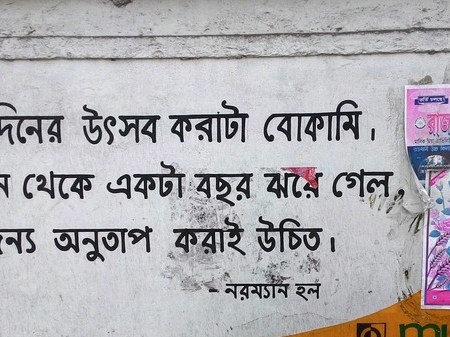 দিনের উৎসব করাটা বোকামি।
ন থেকে একটা বছর ঝরে গেল,
ন্য অনুতাপ করাই উচিত।
- নরম্যান হল
ভর্তি চলছে!